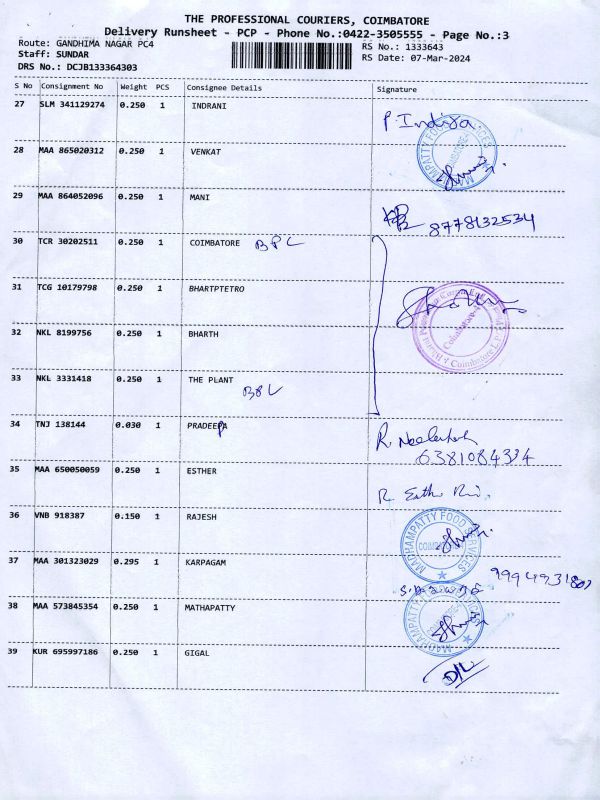 THE PROFESSIONAL COURIERS, COIMBATORE
Delivery Runsheet - PCP - Phone No.:0422-3505555 - Page No.:3
Route: GANDHIMA NAGAR PC4
RS No.: 1333643
Staff: SUNDAR
RS Date: 07-Mar-2024
DRS No.: DCJB133364303
S No Consignment No Weight PCS Consignee Details Signature
27 SLM 341129274 0.250 1 INDRANI
P. Indira
28 MAA 865020312 0.250 1 VENKAT
29 MAA 864052096 0.250 1 MANI
8778132534
30 TCR 30202511 0.250 1 COIMBATORE BPC
31 TCG 10179798 0.250 1 BHARTPTETRO
32 NKL 8199756 0.250 1 BHARTH
33 NKL 3331418 0.250 1 THE PLANT
34 TNJ 138144 0.030 1 PRADEEPA
6381084334
35 MAA 650050059 0.250 1 ESTHER
36 VNB 918387 0.150 1 RAJESH
MADHAMPATTY FOOD SERVICES
37 MAA 301323029 0.295 1 KARPAGAM
38 MAA 573845354 0.250 1 MATHAPATTY
MADHAMPATTY FOOD SERVICES
39 KUR 695997186 0.250 1 GIGAL